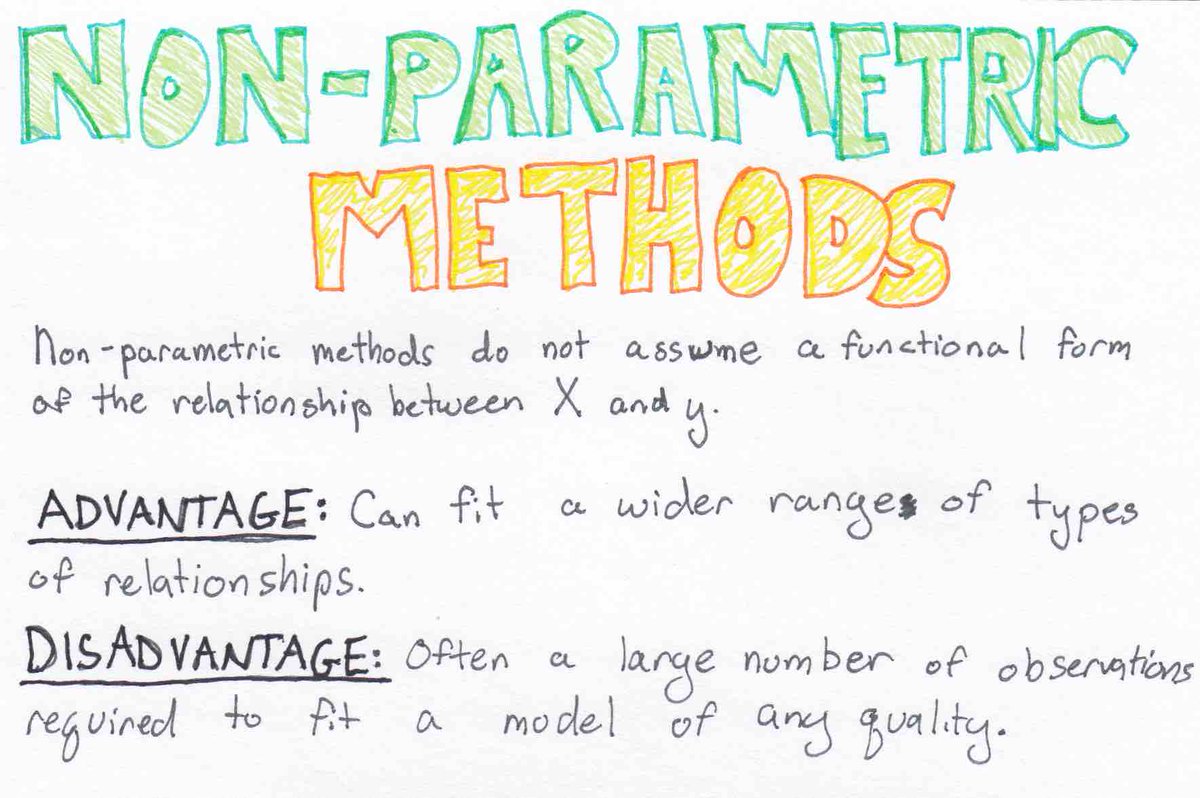 NON-PARAMETRIC
METHODS
Non-parametric methods do not assume a functional form
of the relationship between X and y.
ADVANTAGE: Can fit a wider range of types
of relationships.
DISADVANTAGE: Often a large number of observations
required to fit a model of any quality.